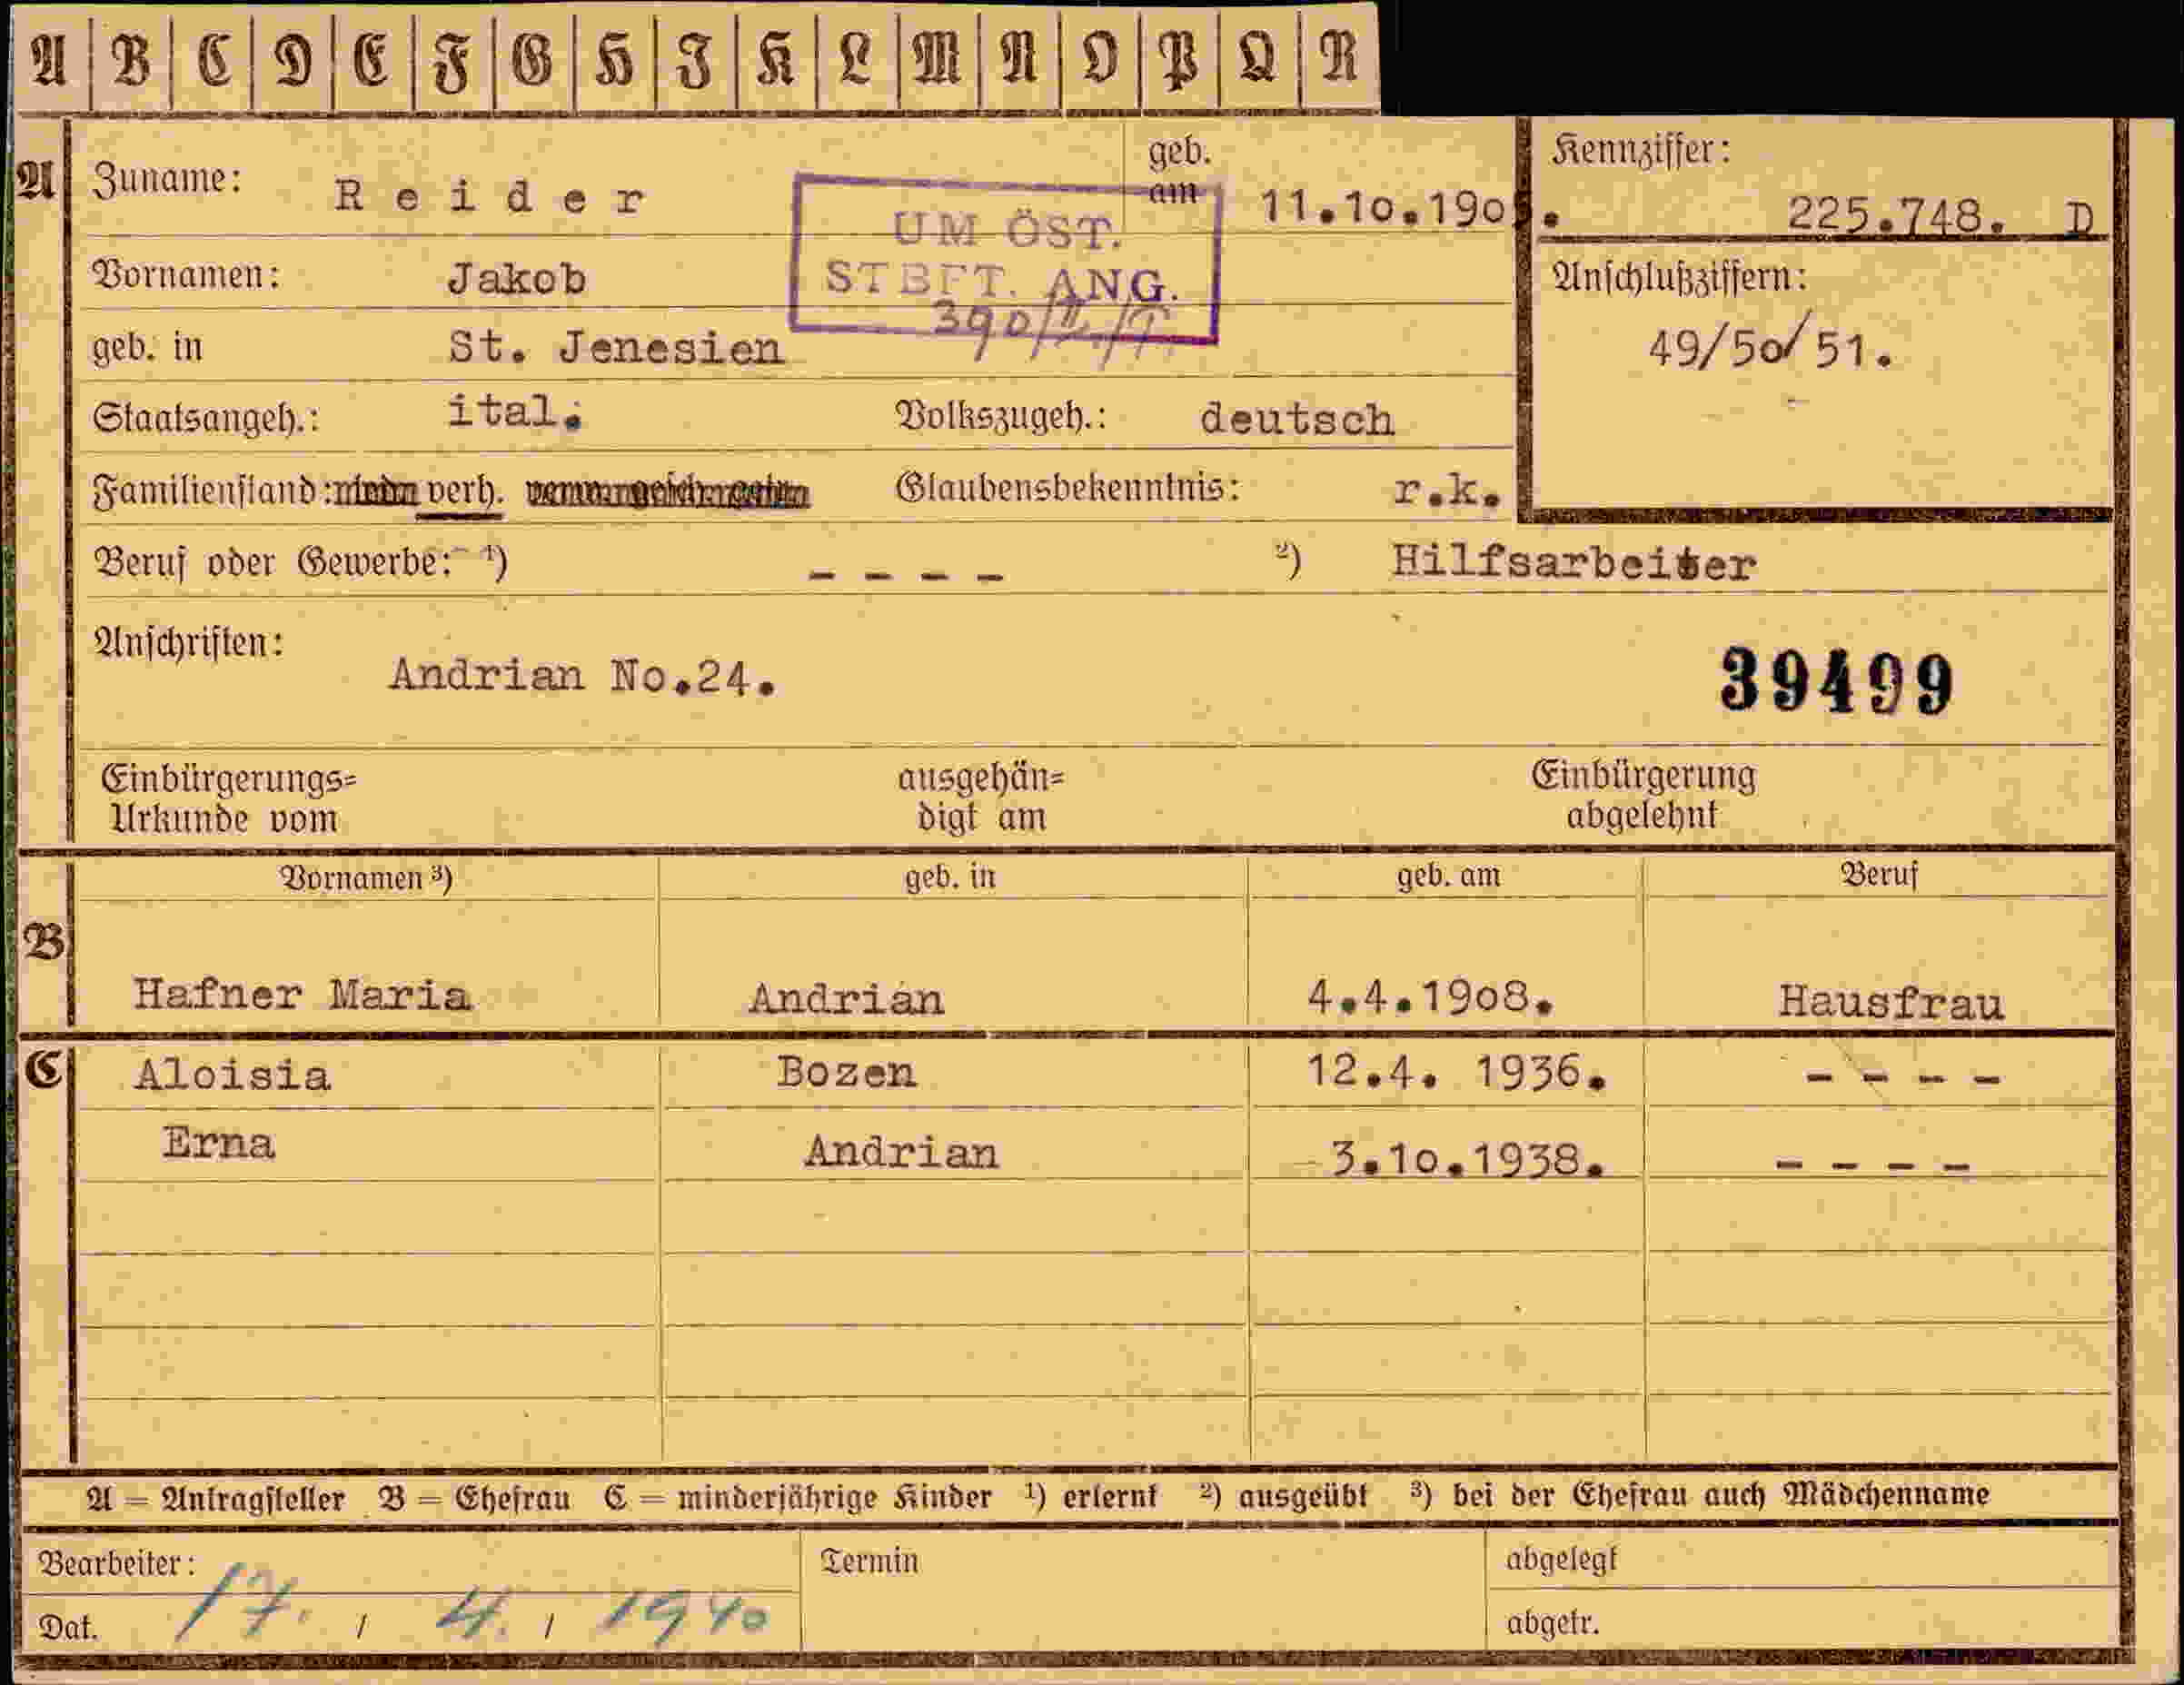 A B C D E F G H I K L M N O P Q R
A Zuname: Reider geb. am 11.10.190 .
Kennziffer: 225.748. D
UM ÖST.
STBFT. ANG.
390/II/T.
Vornamen: Jakob
Anschlußziffern:
49/50/51.
geb. in St. Jenesien
Staatsangeh.: ital. Volkszugeh.: deutsch
Familienstand: verh. Glaubensbekenntnis: r.k.
Beruf oder Gewerbe: ¹) - - - - ²) Hilfsarbeiter
Anschriften: Andrian No.24.
39499
Einbürgerungs= Urkunde vom
ausgehän= digt am
Einbürgerung abgelehnt
Vornamen ³) geb. in geb. am Beruf
B Hafner Maria Andrian 4.4.1908. Hausfrau
C Aloisia Bozen 12.4. 1936. - - - -
Erna Andrian 3.10.1938. - - - -
A = Antragsteller B = Ehefrau C = minderjährige Kinder ¹) erlernt ²) ausgeübt ³) bei der Ehefrau auch Mädchenname
Bearbeiter: Termin abgelegt
Dat. 17. / 4. / 1940 abgetr.